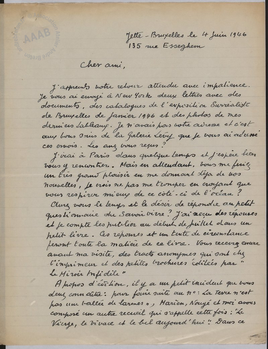 Jette-Bruxelles le 4 Juin 1946
135 rue Esseghem
Cher ami,
J'apprends votre retour attendu avec impatience.
Je vous ai envoyé à New York deux lettres avec des
documents, des catalogues de l'exposition Surréaliste
de Bruxelles de janvier 1946 et des photos de mes
derniers tableaux. Je n'avais pas votre adresse et c'est
aux bons soins de la Galerie que je vous ai adressé
ces envois. Les avez vous reçus?
J'irai à Paris dans quelque temps et j'espère bien
vous y rencontrer. Mais en attendant, vous me feriez
un très grand plaisir en me donnant déjà de vos
nouvelles, je crois ne pas me tromper en croyant que
vous respirez mieux de ce côté-ci de l'océan?
Avez vous le temps et le désir de répondre au petit
questionnaire du Savoir vivre? J'ai reçu des réponses
et je compte les publier au début de juillet dans un
petit livre. Ces réponses et un texte de circonstance
feront toute la matière de ce livre. Vous recevrez
avant ma visite, des tracts anonymes qui sont chez
l'imprimeur et des petites brochures éditées par "
Le Miroir Infidèle"
A propos d'édition, il y a un petit
pour faire suite au n°: La terre n'est
pas une vallée de larmes", Mariën, Nougé et moi avons
composé un autre recueil qui s'appelle cette fois: "Le
Vierge, le Vivace et le bel aujourd'hui". Dans ce